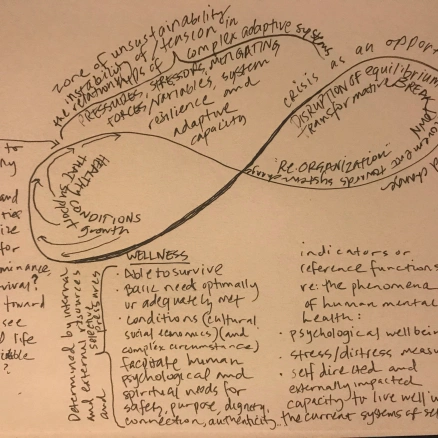 zone of unsustainability
instability of / tension in
the relationships of complex adaptive systems
PRESSURES, STRESSORS, MITIGATING
FORCES/variables, system
resilience and
adaptive
capacity
crisis as an oppor
DISRUPTION of equilibrium
transformative
BREAK
DOWN
movement towards
change
"RE-ORGANIZATION"
systems
HEALTHY CONDITIONS
THAT support
growth
to
ny
and
ties
ize
for
minance,
vival?
toward
see
d life
?
WELLNESS
Determined by internal
and external resources
and selective
pressures
· Able to survive
· Basic need optimally
or adequately met
· conditions (cultural,
social economics) (and
complex circumstance)
facilitate human
psychological and
spiritual needs for
safety, purpose, dignity,
connection, authenticity
indicators or
reference functions
re: the phenomena
of human mental
health:
· psychological wellbein
· stress/distress measu
· self directed and
externally impacted
capacity to live well in
the current systems of se